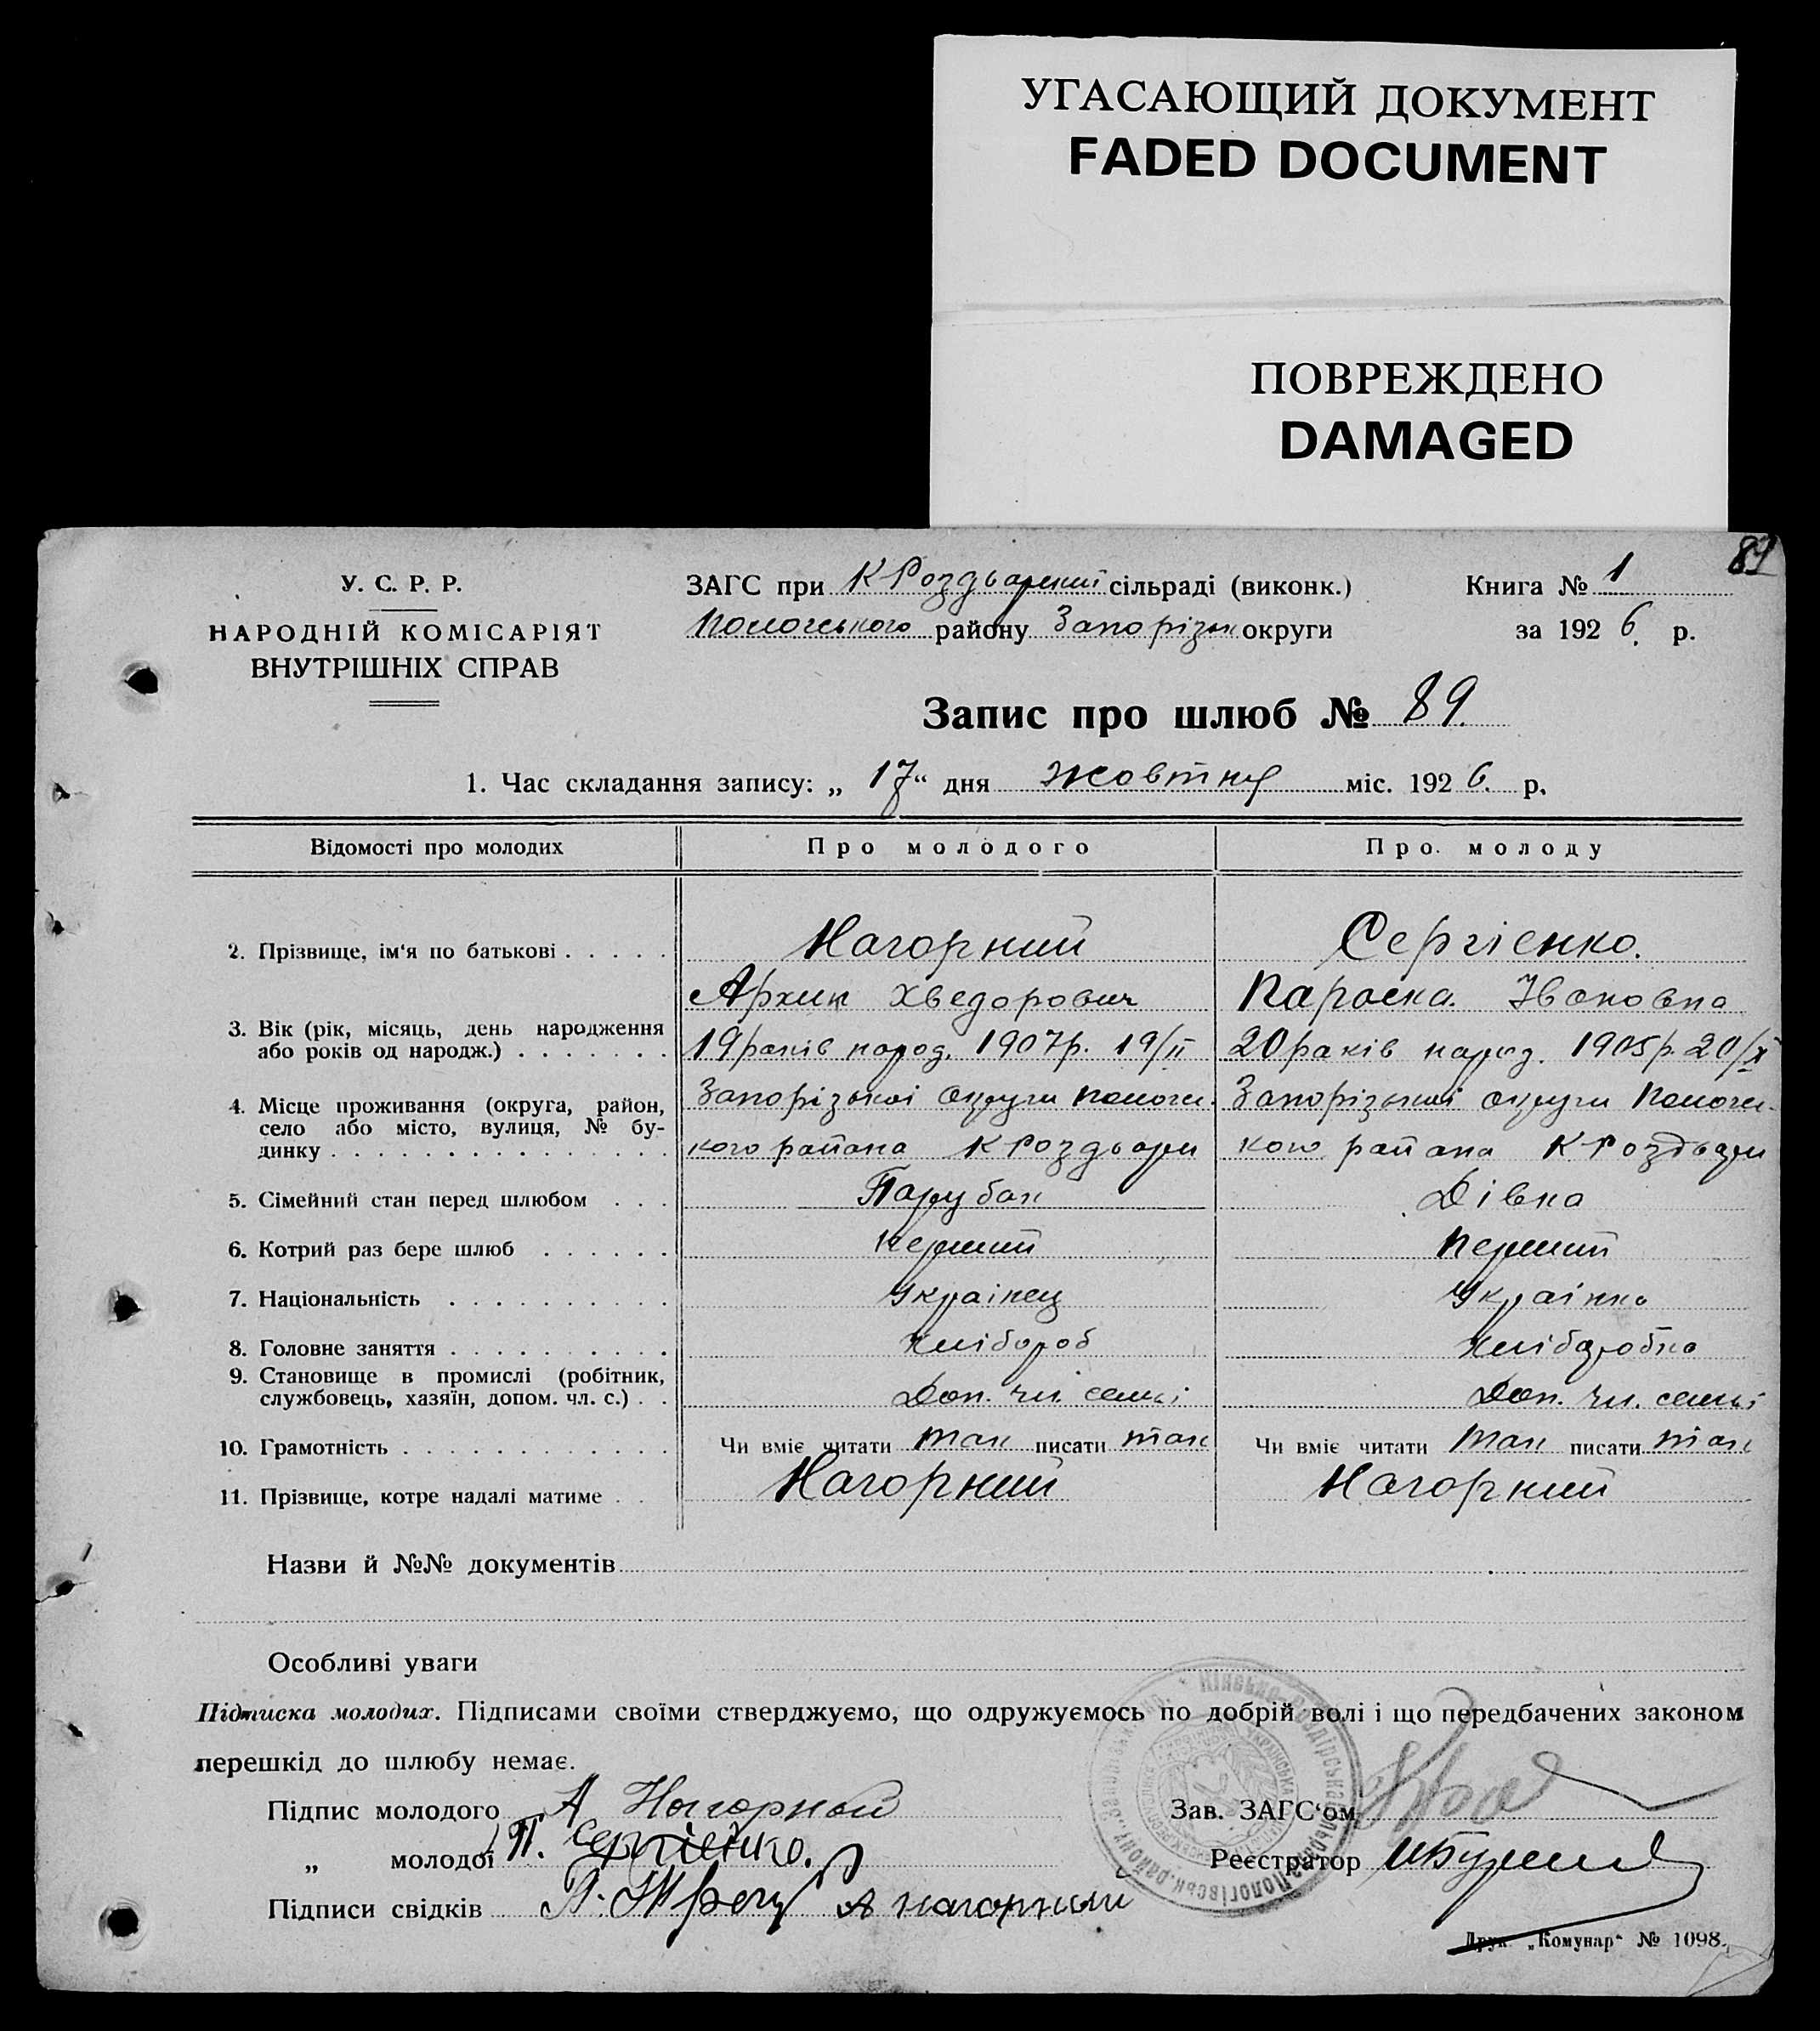 УГАСАЮЩИЙ ДОКУМЕНТ
FADED DOCUMENT
ПОВРЕЖДЕНО
DAMAGED
89
У. С. Р. Р.
НАРОДНІЙ КОМІСАРІЯТ
ВНУТРІШНІХ СПРАВ
ЗАГС при К Роздорскій сільраді (виконк.)
Пологського району Запорізьк округи
Книга № 1
за 1926. р.
Запис про шлюб № 89.
1. Час складання запису: „ 17 “ дня жовтня міс. 1926. р.
Відомості про молодих Про молодого Про молоду
2. Прізвище, ім‘я по батькові . . . . . Нагорний Сергіенко.
Архип Хведорович Параска Івановна
3. Вік (рік, місяць, день народження
або років од народж.) . . . . . . . 19 раків народ. 1907 р. 19/II 20 раків народ. 1905 р. 20/X
4. Місце проживання (округа, район,
село або місто, вулиця, № бу-
динку . . . . . . . . . . . . . . . Запорізької округи Пологс. Запорізької округи Пологс.
кого района К Роздори кого района К Роздори
5. Сімейний стан перед шлюбом . . . Парубак Дівка
6. Котрий раз бере шлюб . . . . . . Перший Перший
7. Національність . . . . . . . . . . Украінец Украінка
8. Головне заняття . . . . . . . . . . Хлібороб Хлібаробка
9. Становище в промислі (робітник,
службовець, хазяїн, допом. чл. с.) . . Доп. чл. семьі Доп. чл. семьі
10. Грамотність . . . . . . . . . . . . Чи вміє читати так писати так Чи вміє читати так писати так
11. Прізвище, котре надалі матиме . . Нагорний Нагорний
Назви й №№ документів
Особливі уваги
Підписка молодих. Підписами своїми стверджуємо, що одружуємось по добрій волі і що передбачених законом
перешкід до шлюбу немає.
Підпис молодого А Нагорный
„ молодої П. Сергіенко.
Підписи свідків А Нагорный
Зав. ЗАГС‘ом
Реєстратор
Друк. „Комунар“ № 1098.